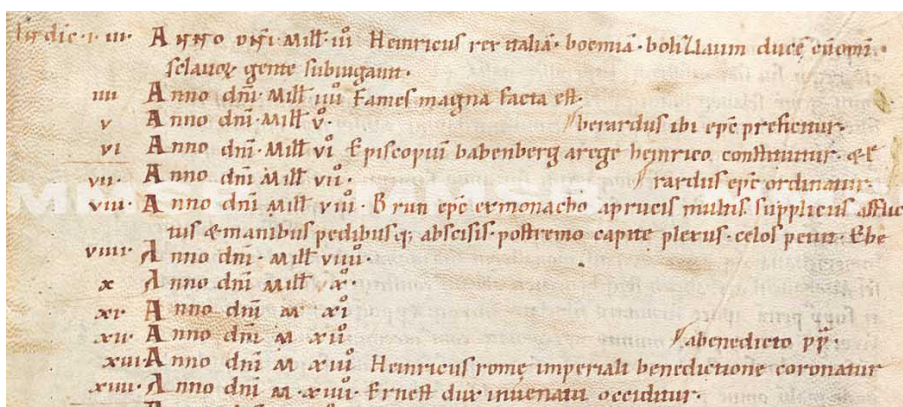 Indic·i· iii· Anno dn̅i Mill̅ iii̊ Heinricus rex italia̅· boemia̅· bolizlauum duce̅ cu̅ omni·
sclauoꝝ gente subiugauit·
iiii Anno dn̅i· Mill̅ iiii̊ Fames magna facta est·
v Anno dn̅i· Mill̅ v̊· berardus ibi ep̅c preficitur·
vi Anno dn̅i· Mill̅ vi̊ Episcopiu̅ babenberg a rege heinrico constituitur· &
vii· Anno dn̅i Mill̅ vii̊· rardus ep̅c ordinatur·
viii· Anno dn̅i Mill̅ viii̊· Brun ep̅c ex monacho a pruciis multis suppliciis afflic
tus & manibus pedibusq; abscisis· postremo capite plexus· celos petiit· Ebe
viiii· Anno dn̅i· Mill̅ viiii̊·
x Anno dn̅i Mill̅ x̊·
xi· Anno dn̅i M xi̊
xii· Anno dn̅i M xii̊ a benedicto pp̅·
xiii· Anno dn̅i M xiii̊ Heinricus rome̜ imperiali benedictione coronatur
xiiii· Anno dn̅i M· xiiii̊· Ernest dux in uenatu occiditur·